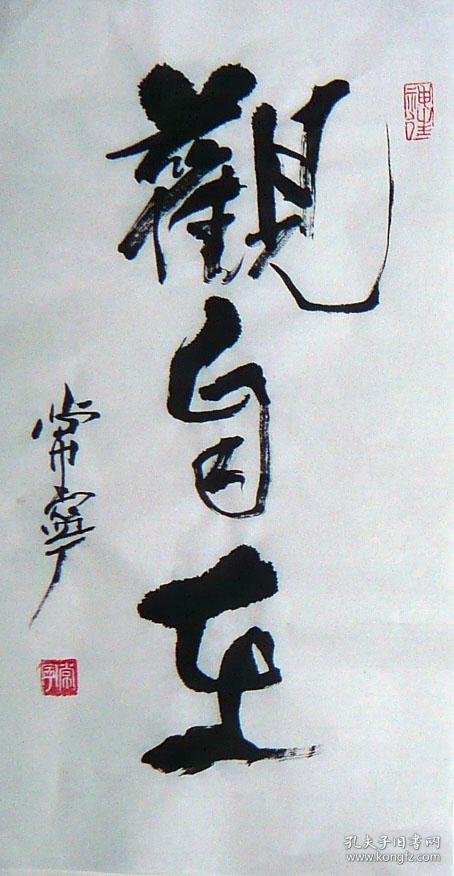 觀自在
常寧
常宁
孔夫子旧书网
www.kongfz.com